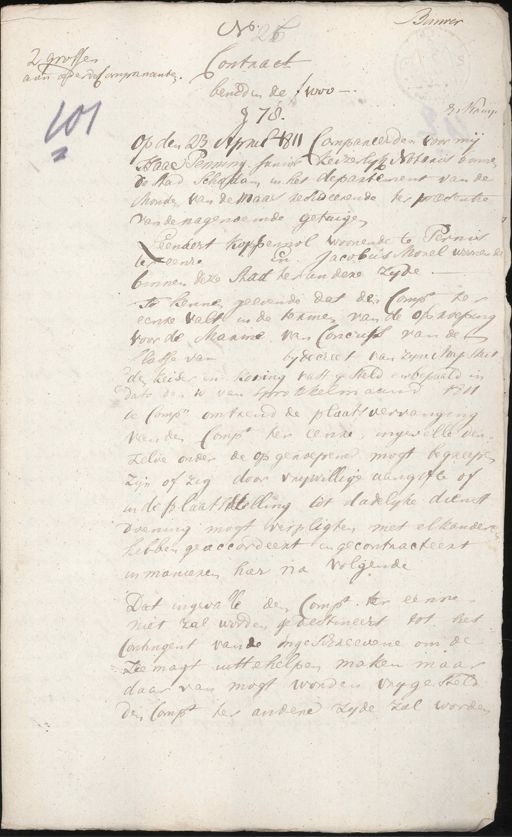 No. 26
Banver
2 grossen
aan ider de Comparanten.
Contract
beneden de f 1000 —.
§ 78.
101
Op den 23 April 1811 Compareerden voor mij
Isaac Penning Junior Keizerlijk Notaris binnen
de stad Schiedam in het departement van de
Monden van de Maas resideerende ter presentie
van de nagenoemde getuigen
Leendert Koppenol wonende te Pernis
ter eenre En Jacobus Morel wonende
binnen deze stad ter andere zijde —
Te kenne geevende dat den Compt. ter
eenre valt in de termen van de oproeping
voor de Marine van Conscrits van de
klasse van bij decreet van zijne Majesteit
den Keizer en Koning vastgesteld en bepaald in
dato den van Sprokkelmaand 1811
de Compn. omtrend de plaatsvervanging
van den Compt. ter eenre, ingevalle den
zelve onder de opgeroepene mogt begrepen
zijn of zig door vrijwillige aangifte of
in de plaatstelling tot dadelijke dienst
doening mogt verpligten met elkander
hebben geaccordeert en gecontracteert
in manieren hier na volgende
Dat ingevalle den Compt. ter eenre
niet zal worden gedestineert tot het
Contingent van de ingeschreevene om de
Zeemagt uittehelpen maken maar
daar van mogt worden vrijgesteld
den Compt. ter andere zijde zal worden